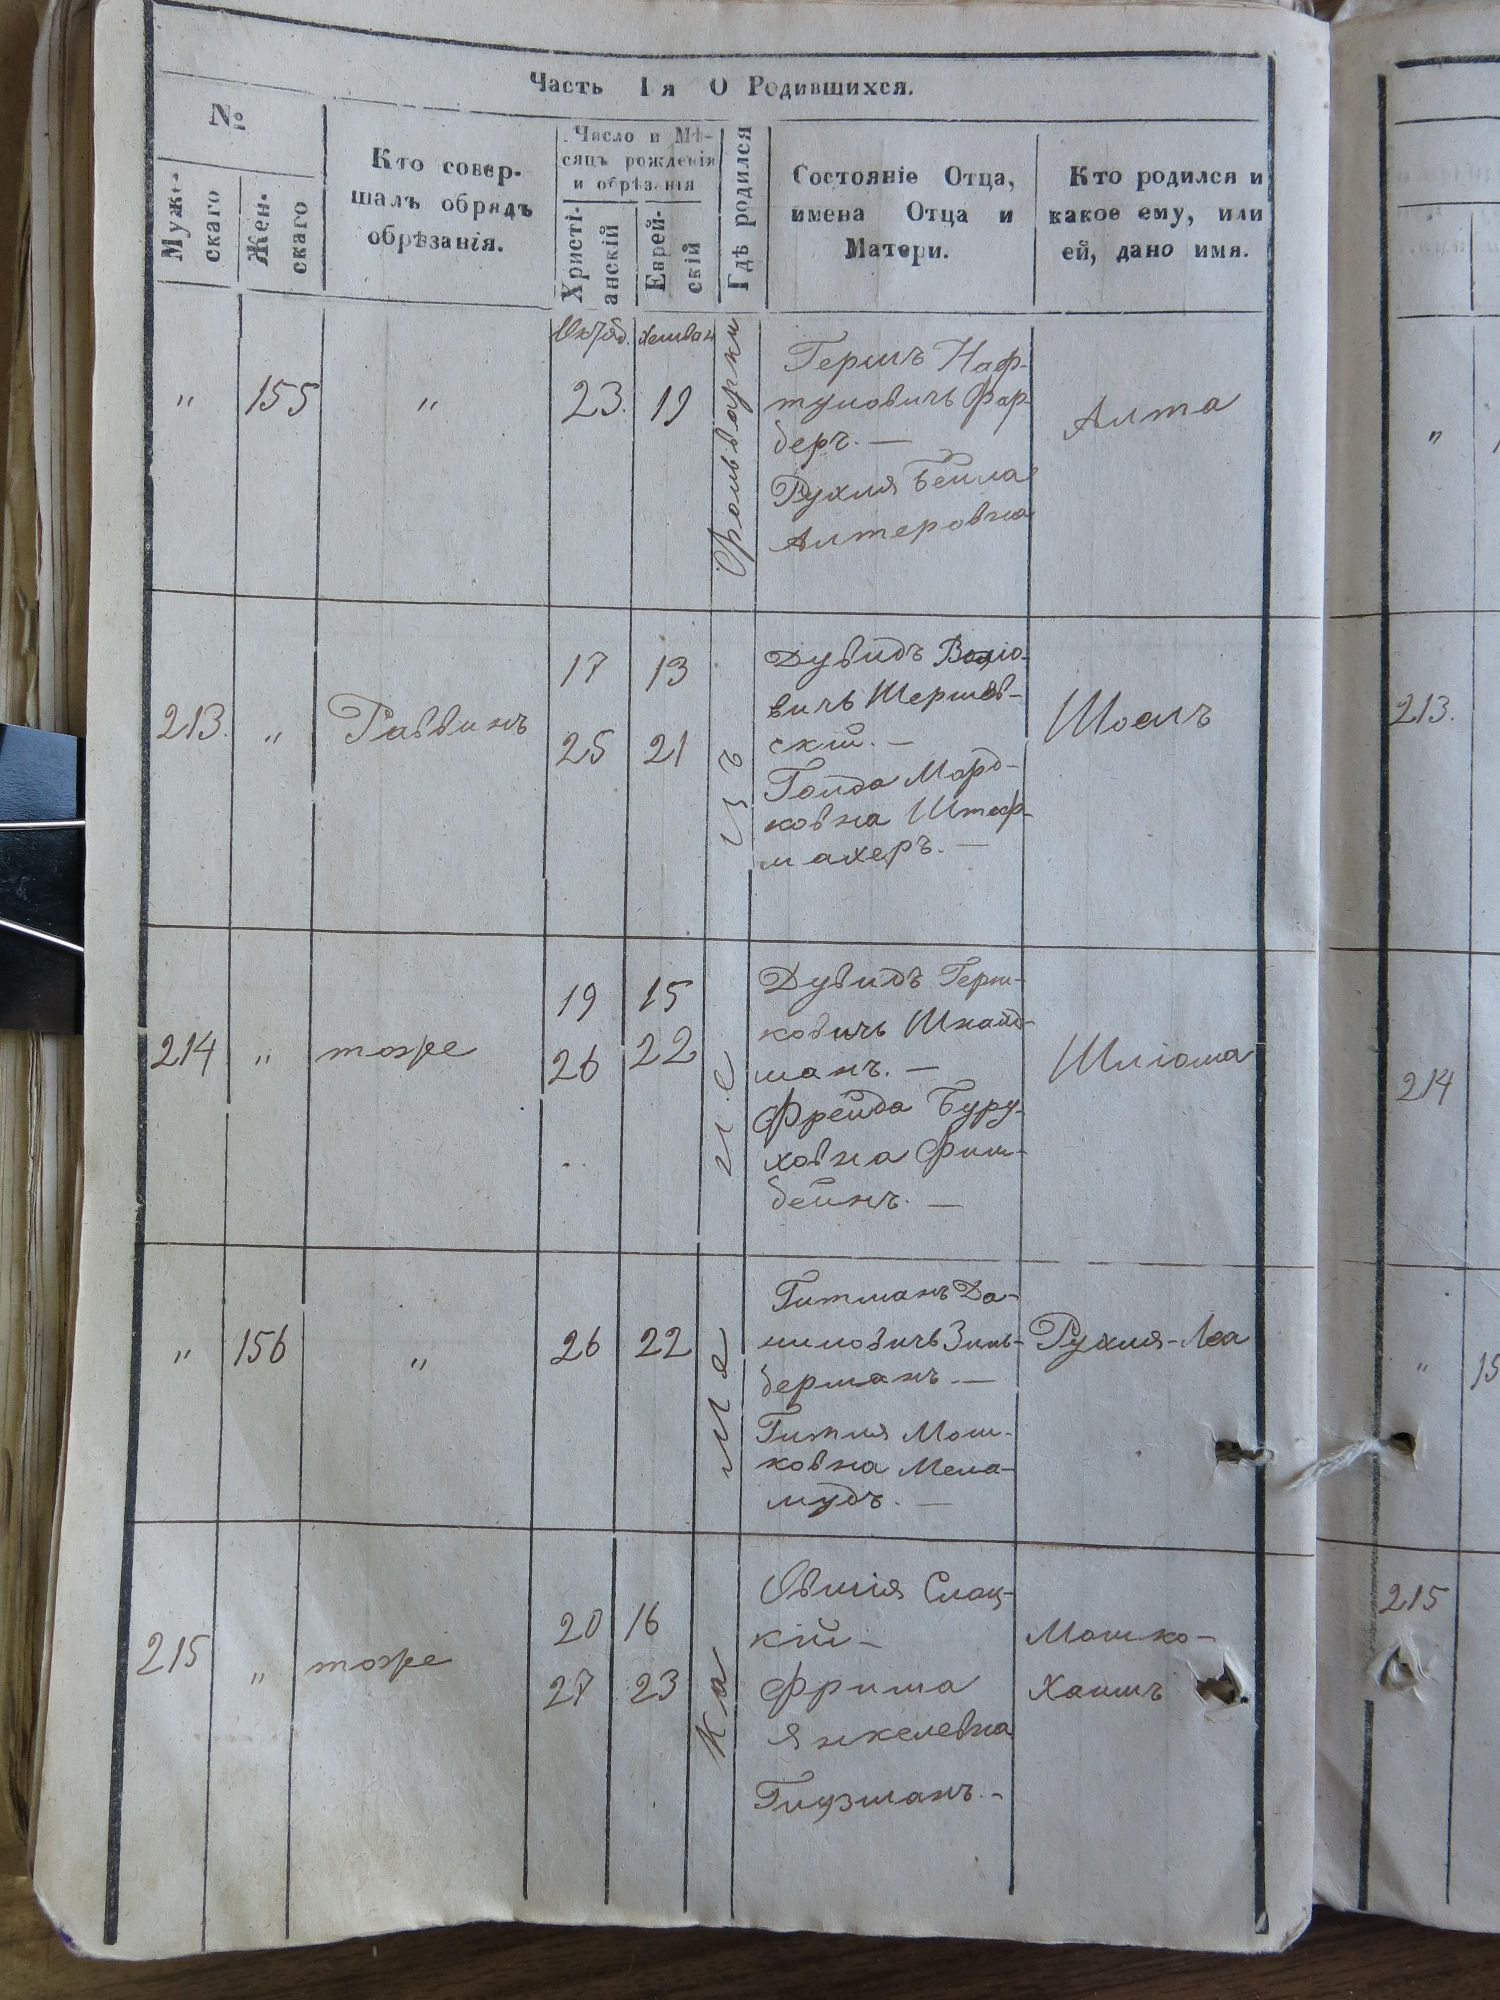 Часть I я О Родившихся.
№
Муже-
скаго
Жен-
скаго
Кто совер-
шалъ обрядъ
обрѣзанія.
Число и Мѣ-
сяцъ рожденія
и обрѣзанія
Христі-
анскій
Еврей-
скій
Гдѣ родился
Состояніе Отца,
имена Отца и
Матери.
Кто родился и
какое ему, или
ей, дано имя.
Октяб. Хешван
„ 155 „ 23. 19
Фольварки
Гершъ Наф-
туловичъ Фар-
беръ. —
Рухля Бейла
Алтеровна
Алта
213. „ Раввинъ
17 13
25 21
Дувидъ
вичъ
скій. —
Голда Морд-
ковна
махеръ. —
Шоелъ
213.
214 „ тоже
19 15
26 22
Дувидъ Герш-
ковичъ Шнайд-
манъ. —
Фрейда Буру-
ховна Фиш-
бейнъ. —
Шлiома
214
„ 156 „ 26 22
Гитманъ Да-
ниловичъ Зиль-
берманъ —
Гитля Мош-
ковна Мела-
мудъ. —
Рухля-Леа
„ 15
215 „ тоже
20 16
27 23
Овшія Слоц-
кій —
Фрима
Янкелевна
Глузманъ. —
Мошко-
Хаимъ
215
Каменецъ